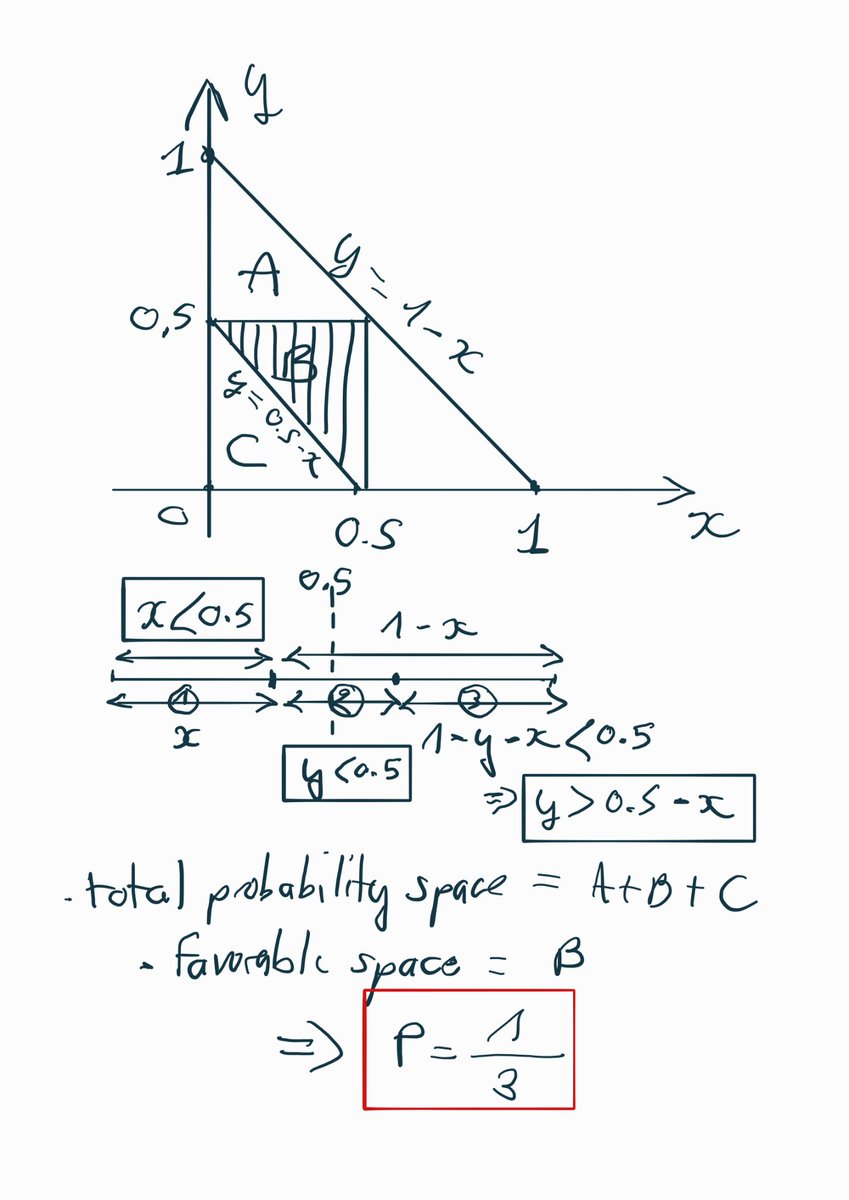 y
1
A
y = 1 - x
0,5
B
y = 0.5 - x
C
0
0.5
1
x
0.5
x < 0.5
1 - x
1
2
3
x
1 - y - x < 0.5
y < 0.5
=> y > 0.5 - x
. total probability space = A + B + C
. favorable space = B
=> P = 1/3